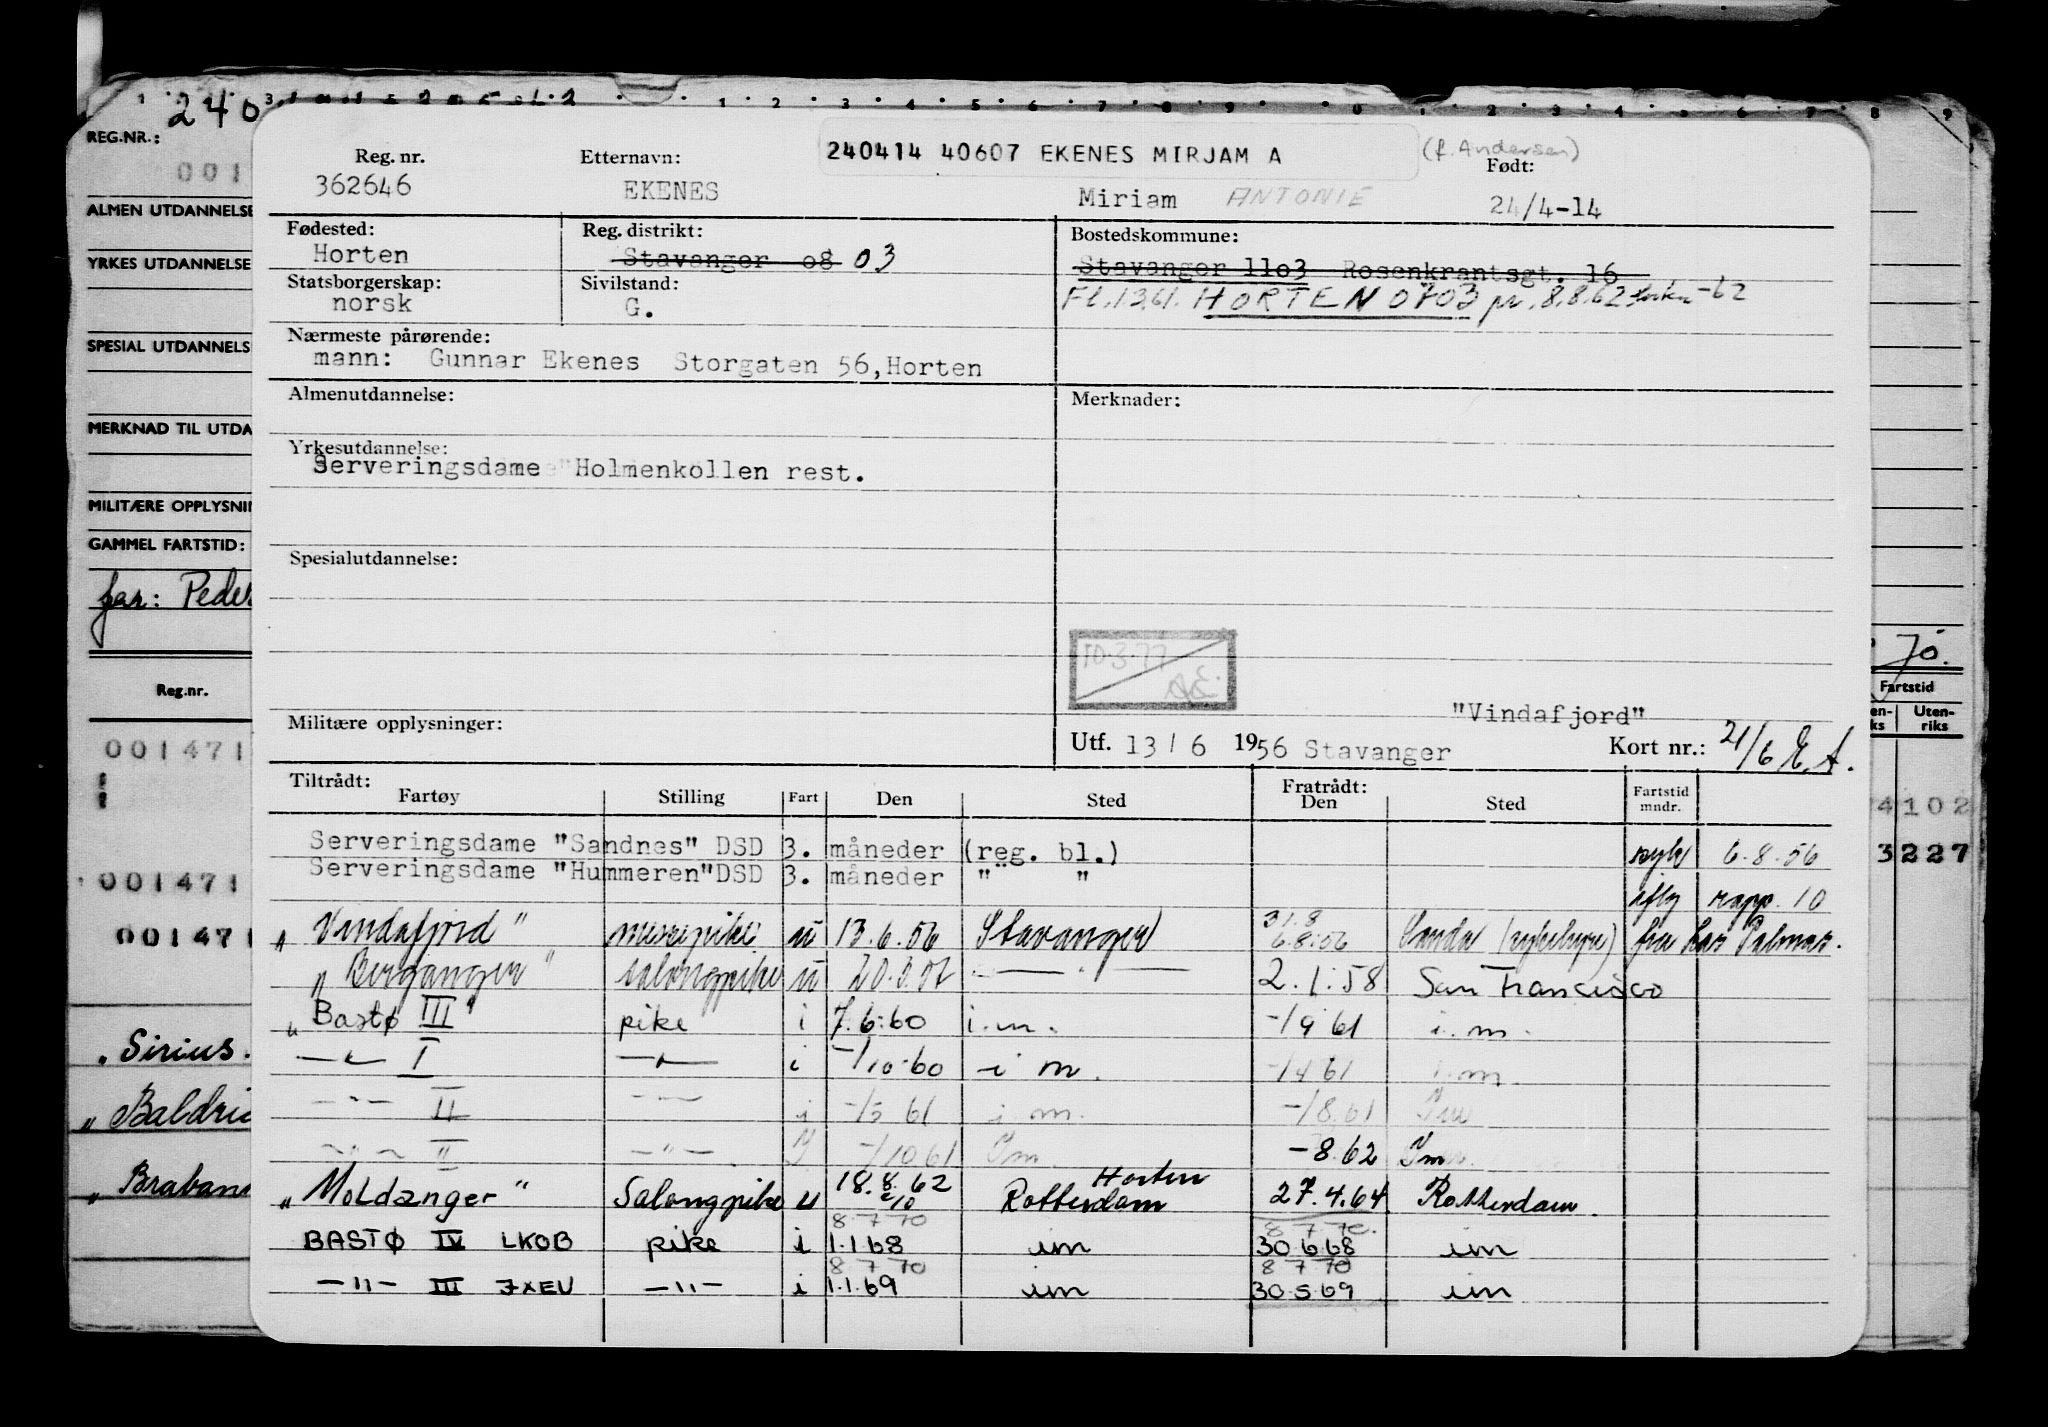 240
REG.NR.:
001
ALMEN UTDANNELSE
YRKES UTDANNELSE
SPESIAL UTDANNELS
MERKNAD TIL UTDA
MILITÆRE OPPLYSNIN
GAMMEL FARTSTID:
far: Peder
Reg.nr.
001471
001471
001471
"Sirius.
"Baldri
"Braban
Reg. nr. Etternavn: 240414 40607 EKENES MIRJAM A (f. Andersen) Født:
362646 EKENES Miriam ANTONIE 24/4-14
Fødested: Reg. distrikt: Bostedskommune:
Horten Stavanger o8 03 Stavanger 11o3 Rosenkrantsgt. 16
Statsborgerskap: Sivilstand: Fl. 1.3.61. HORTEN 0703 pr. 8.8.62 -62
norsk G.
Nærmeste pårørende:
mann: Gunnar Ekenes Storgaten 56, Horten
Almenutdannelse: Merknader:
Yrkesutdannelse:
Serveringsdame "Holmenkollen rest.
Spesialutdannelse:
10.3.77
Militære opplysninger: "Vindafjord"
Utf. 13/6 1956 Stavanger Kort nr.: 21/6 E.A.
Tiltrådt: Fratrådt: Fartstid
Fartøy Stilling Fart Den Sted Den Sted mndr.
Serveringsdame "Sandnes" DSD 3. måneder (reg. bl.) 6.8.56
Serveringsdame "Hummeren"DSD 3. måneder " "
iflg rapp. 10
"Vindafjord" messepike u 13.6.56 Stavanger 31.8 6.8.56 fra Las Palmas.
"Berganger" salongpike u — " — 2.1.58 San Francisco
"Bastø III" pike i 7.6.60 i.m. -/9 61 i.m.
— " — I — " — i -/10-60 i m. -/4 61 i.m.
— " — II — " — i 61 i m. -/8.61 Im
— " — II — " — I -/10 61 Im -8.62 Im.
"Moldanger" Salongpike u 18.8.62 Horten Rotterdam 27.4.64 Rotterdam
8 7 70 8 7 70.
BASTØ IV LKOB pike i 1.1.68 im 30.6.68 im
8 7 70 8 7 70
— " — III JXEU — " — i 1.1.69 im 30.5.69 im
Jo.
Fartstid
en- Uten-
ks riks
4102
3227